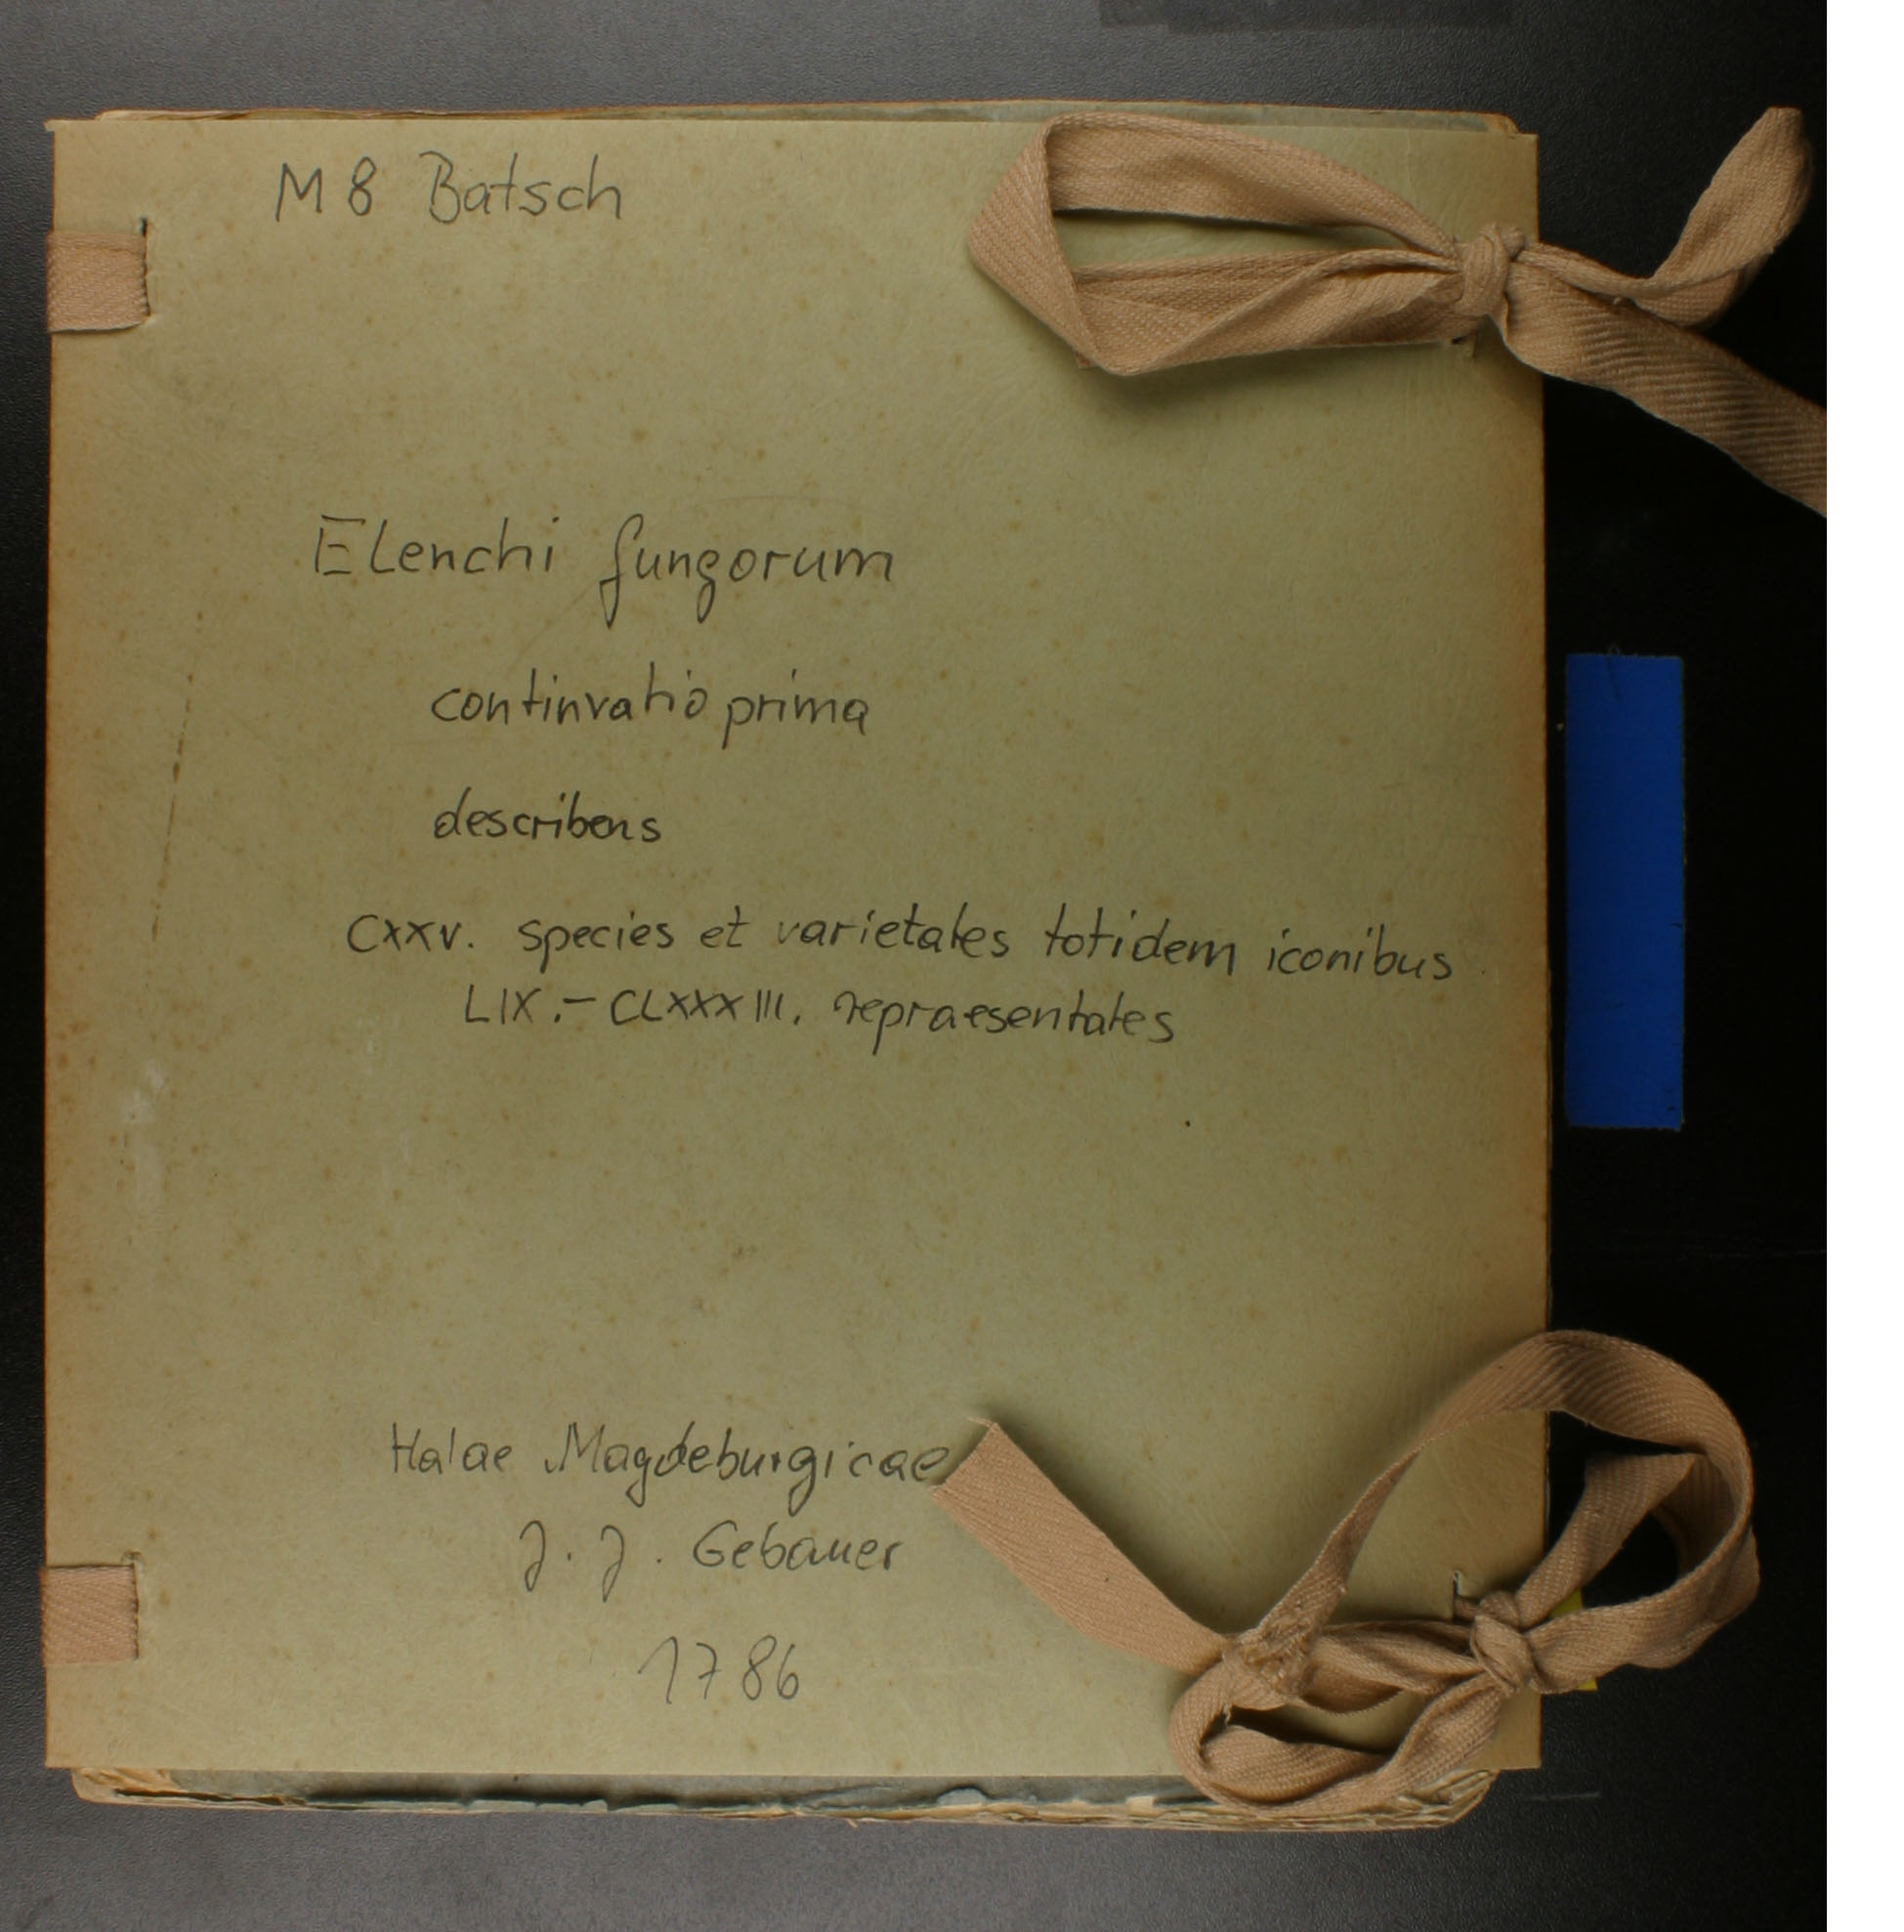 M 8 Batsch
Elenchi fungorum
continvatio prima
describens
CXXV. species et varietates totidem iconibus
LIX. - CLXXXIII. repraesentates
Halae Magdeburgicae
J. J. Gebauer
1786